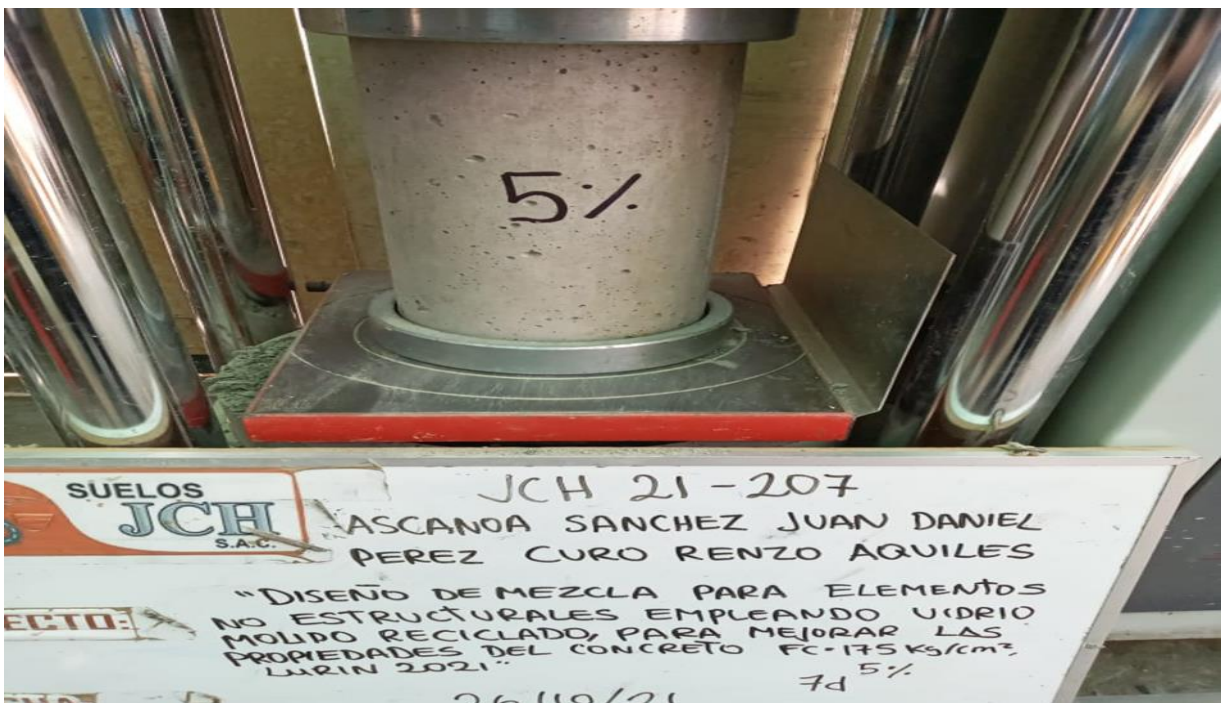 5%
SUELOS
JCH
S.A.C.
JCH 21-207
ASCANOA SANCHEZ JUAN DANIEL
PEREZ CURO RENZO AQUILES
"DISEÑO DE MEZCLA PARA ELEMENTOS
NO ESTRUCTURALES EMPLEANDO VIDRIO
MOLIDO RECICLADO, PARA MEJORAR LAS
PROPIEDADES DEL CONCRETO FC=175 Kg/cm²,
LURIN 2021"
7d 5%
ECTO: